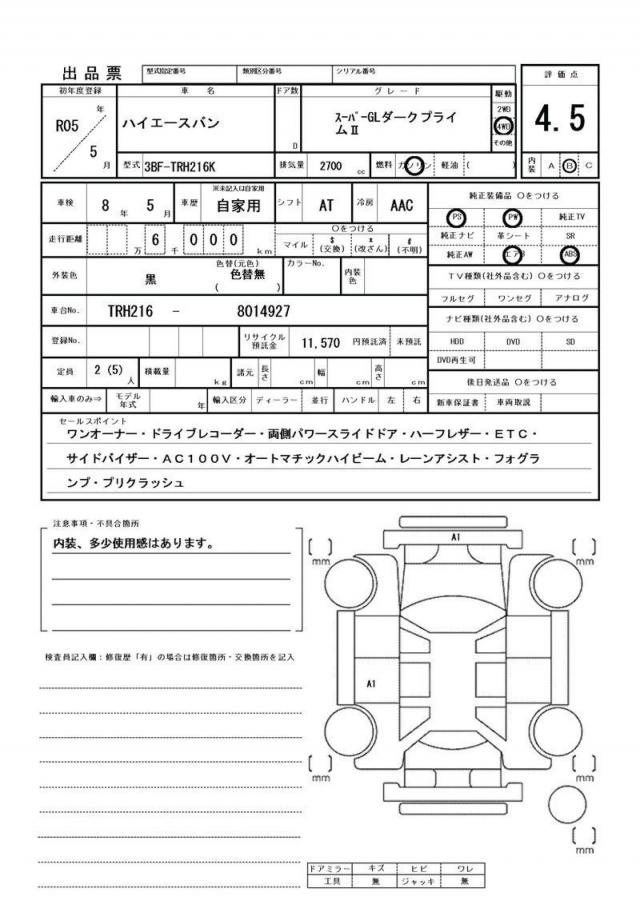 出品票 型式指定番号 類別区分番号 シリアル番号
評価点
初年度登録 車名 ドア数 グレード 駆動
R05 年 5 月
ハイエースバン
D
スーパーGLダークプライ
ムⅡ
2WD
4WD
その他
4.5
型式 3BF-TRH216K 排気量 2700 cc 燃料 ガソリン 軽油 ( ) 内装 A B C
車検 8 年 5 月 車歴 ※未記入は自家用 自家用 シフト AT 冷房 AAC
純正装備品 ○をつける
PS PW 純正TV
純正ナビ 革シート SR
純正AW エアB ABS
走行距離 万 6 千 0 0 0 km
○をつける
マイル $(交換) *(改ざん) #(不明)
外装色 黒 色替(元色) 色替無 ( ) カラーNo. 内装色
TV種類(社外品含む) ○をつける
フルセグ ワンセグ アナログ
車台No. TRH216 - 8014927
ナビ種類(社外品含む) ○をつける
登録No. リサイクル預託金 11,570 円預託済 未預託
HDD DVD SD
DVD再生可
定員 2 (5) 人 積載量 kg 諸元 長さ cm 幅 cm 高さ cm
後日発送品 ○をつける
輸入車のみ⇒ モデル年式 年 輸入区分 ディーラー 並行 ハンドル 左 右
新車保証書 車両取説
セールスポイント
ワンオーナー・ドライブレコーダー・両側パワースライドドア・ハーフレザー・ETC・
サイドバイザー・AC100V・オートマチックハイビーム・レーンアシスト・フォグラ
ンプ・プリクラッシュ
注意事項・不具合箇所
内装、多少使用感はあります。
検査員記入欄:修復歴「有」の場合は修復箇所・交換箇所を記入
A1
[ ] mm
[ ] mm
A1
[ ] mm
[ ] mm
[ ] mm
ドアミラー キズ ヒビ ワレ
工具 無 ジャッキ 無